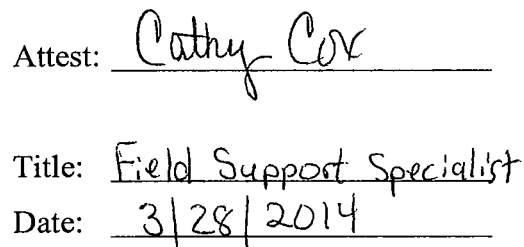 Attest: Cathy Cox
Title: Field Support Specialist
Date: 3|28|2014